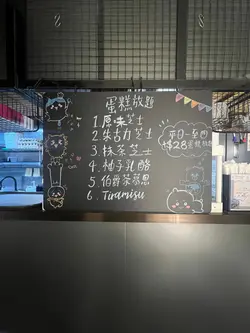 蛋糕放題
1. 原味芝士
2. 朱古力芝士
3. 抹茶芝士
4. 柚子乳酪
5. 伯爵茶慕思
6. Tiramisu
平日一至四
+$28